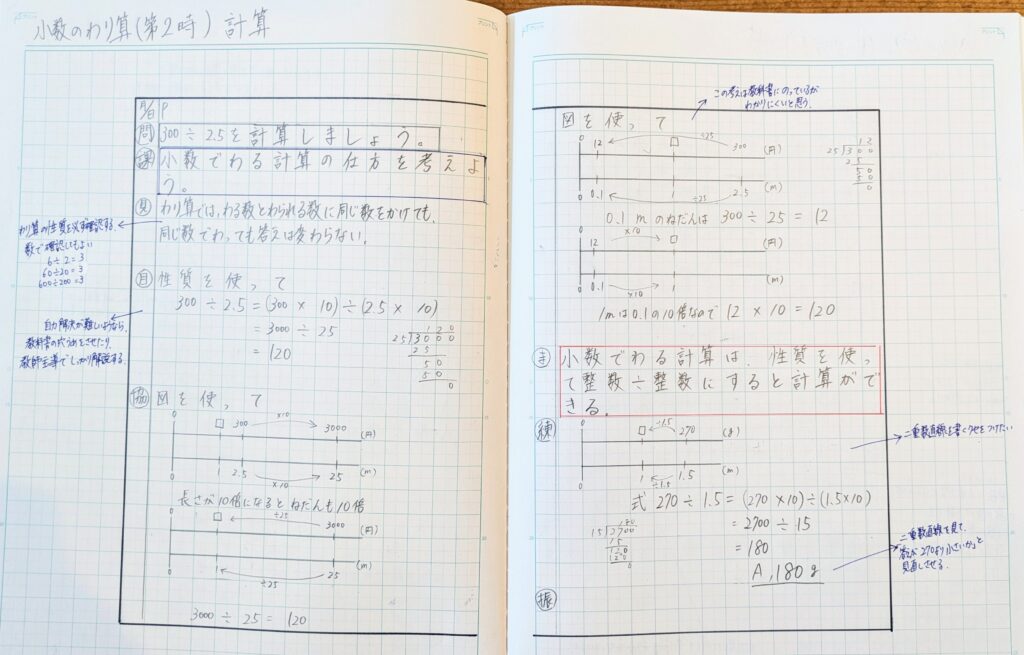 小数のわり算(第2時) 計算
月/日 P
問 300÷2.5を計算しましょう。
課 小数でわる計算の仕方を考えよ
う。
見 わり算では、わる数とわられる数に同じ数をかけても、
同じ数でわっても答えは変わらない。
わり算の性質を必ず確認する。
数で確認してもよい
6÷2=3
60÷20=3
600÷200=3
自 性質を使って
300÷2.5=(300×10)÷(2.5×10)
=3000÷25
=120
120
25)3000
25
50
50
0
自力解決が難しいようなら、
教科書の穴うめをさせたり、
教師主導でしっかり解説する。
協 図を使って
×10
0 □ 300 3000 (円)
0 1 2.5 25 (m)
×10
長さが10倍になるとねだんも10倍
÷25
0 □ 3000 (円)
0 1 25 (m)
÷25
3000÷25=120
この考えは教科書にのっているが
わかりにくいと思う。
図を使って
÷25
0 12 □ 300 (円)
0 0.1 1 2.5 (m)
÷25
12
25)300
25
50
50
0
0.1mのねだんは 300÷25=12
×10
0 12 □ (円)
0 0.1 1 (m)
×10
1mは0.1の10倍なので 12×10=120
ま 小数でわる計算は、性質を使っ
て整数÷整数にすると計算がで
きる。
練
÷1.5
0 □ 270 (g)
0 1 1.5 (m)
÷1.5
二重数直線を書くくせをつけたい
式 270÷1.5=(270×10)÷(1.5×10)
=2700÷15
=180
A,180g
180
15)2700
15
120
120
0
二重数直線を見て、
答えが270より小さいか」と
見直しさせる。
振